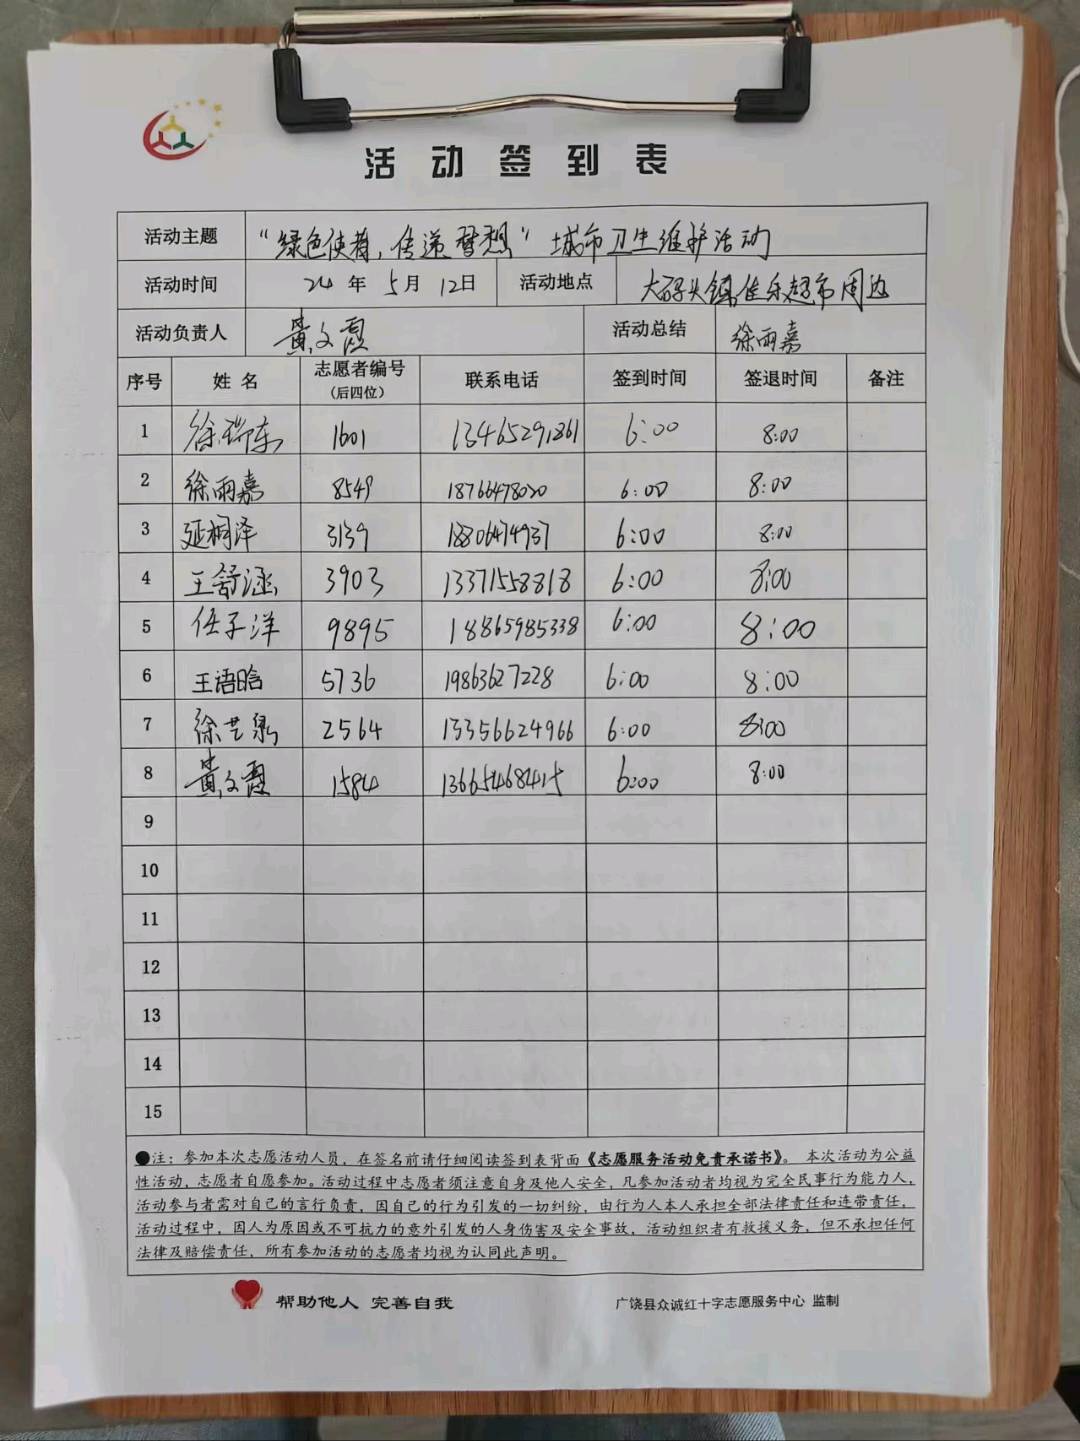 活动签到表
活动主题 “绿色使者，传递梦想”城市卫生维护活动
活动时间 24 年 5 月 12 日 活动地点 大码头镇佳乐超市周边
活动负责人 黄文霞 活动总结 徐雨嘉
序号 姓 名 志愿者编号（后四位） 联系电话 签到时间 签退时间 备注
1 徐瑞东 1601 13465291861 6:00 8:00
2 徐雨嘉 8549 18766478020 6:00 8:00
3 延桐泽 3139 18806474937 6:00 8:00
4 王舒涵 3903 13371558818 6:00 8:00
5 任子洋 9895 18865985338 6:00 8:00
6 王语晗 5736 19863627228 6:00 8:00
7 徐艺泉 2564 13356624966 6:00 8:00
8 黄文霞 1584 13665468415 6:00 8:00
9
10
11
12
13
14
15
●注：参加本次志愿活动人员，在签名前请仔细阅读签到表背面《志愿服务活动免责承诺书》。本次活动为公益
性活动，志愿者自愿参加。活动过程中志愿者须注意自身及他人安全，凡参加活动者均视为完全民事行为能力人，
活动参与者需对自己的言行负责，因自己的行为引发的一切纠纷，由行为人本人承担全部法律责任和连带责任，
活动过程中，因人为原因或不可抗力的意外引发的人身伤害及安全事故，活动组织者有救援义务，但不承担任何
法律及赔偿责任，所有参加活动的志愿者均视为认同此声明。
帮助他人 完善自我 广饶县众诚红十字志愿服务中心 监制